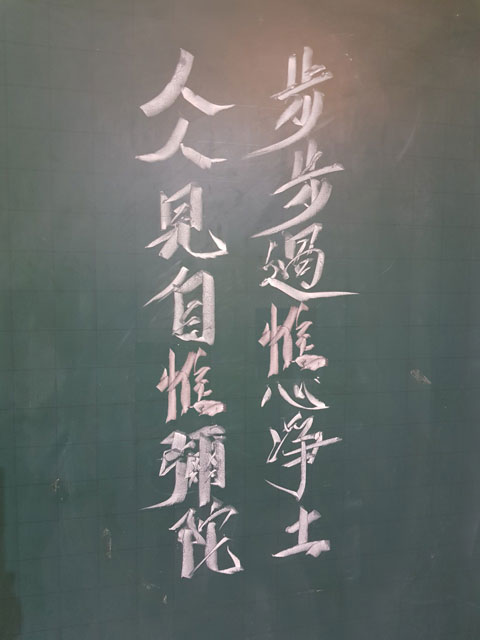 步步過惟心淨土
人人見自惟彌陀